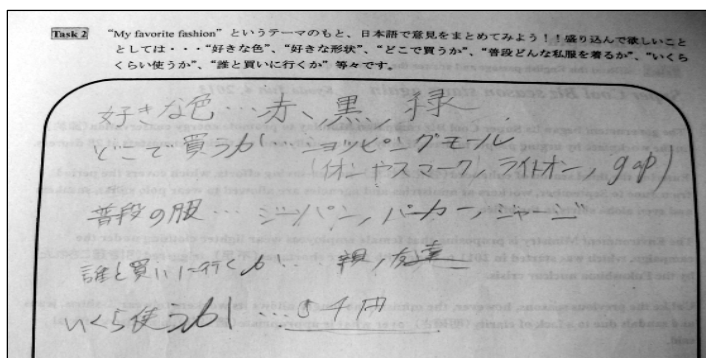 Task 2 "My favorite fashion" というテーマのもと、日本語で意見をまとめてみよう！！盛り込んで欲しいこと
としては・・・"好きな色"、"好きな形状"、"どこで買うか"、"普段どんな私服を着るか"、"いくら
くらい使うか"、"誰と買いに行くか" 等々です。
好きな色…赤、黒、緑
どこで買うか…ショッピングモール
(イオンやスマーク, ライトオン, gap)
普段の服… ジーパン, パーカー, ジャージ
誰と買いに行くか… 親, 友達
いくら使うか …5千円